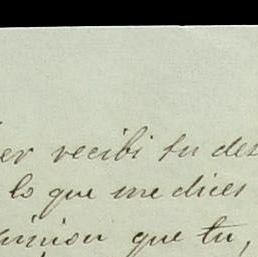 er recibi tu des
lo que me dices
inion que tu,